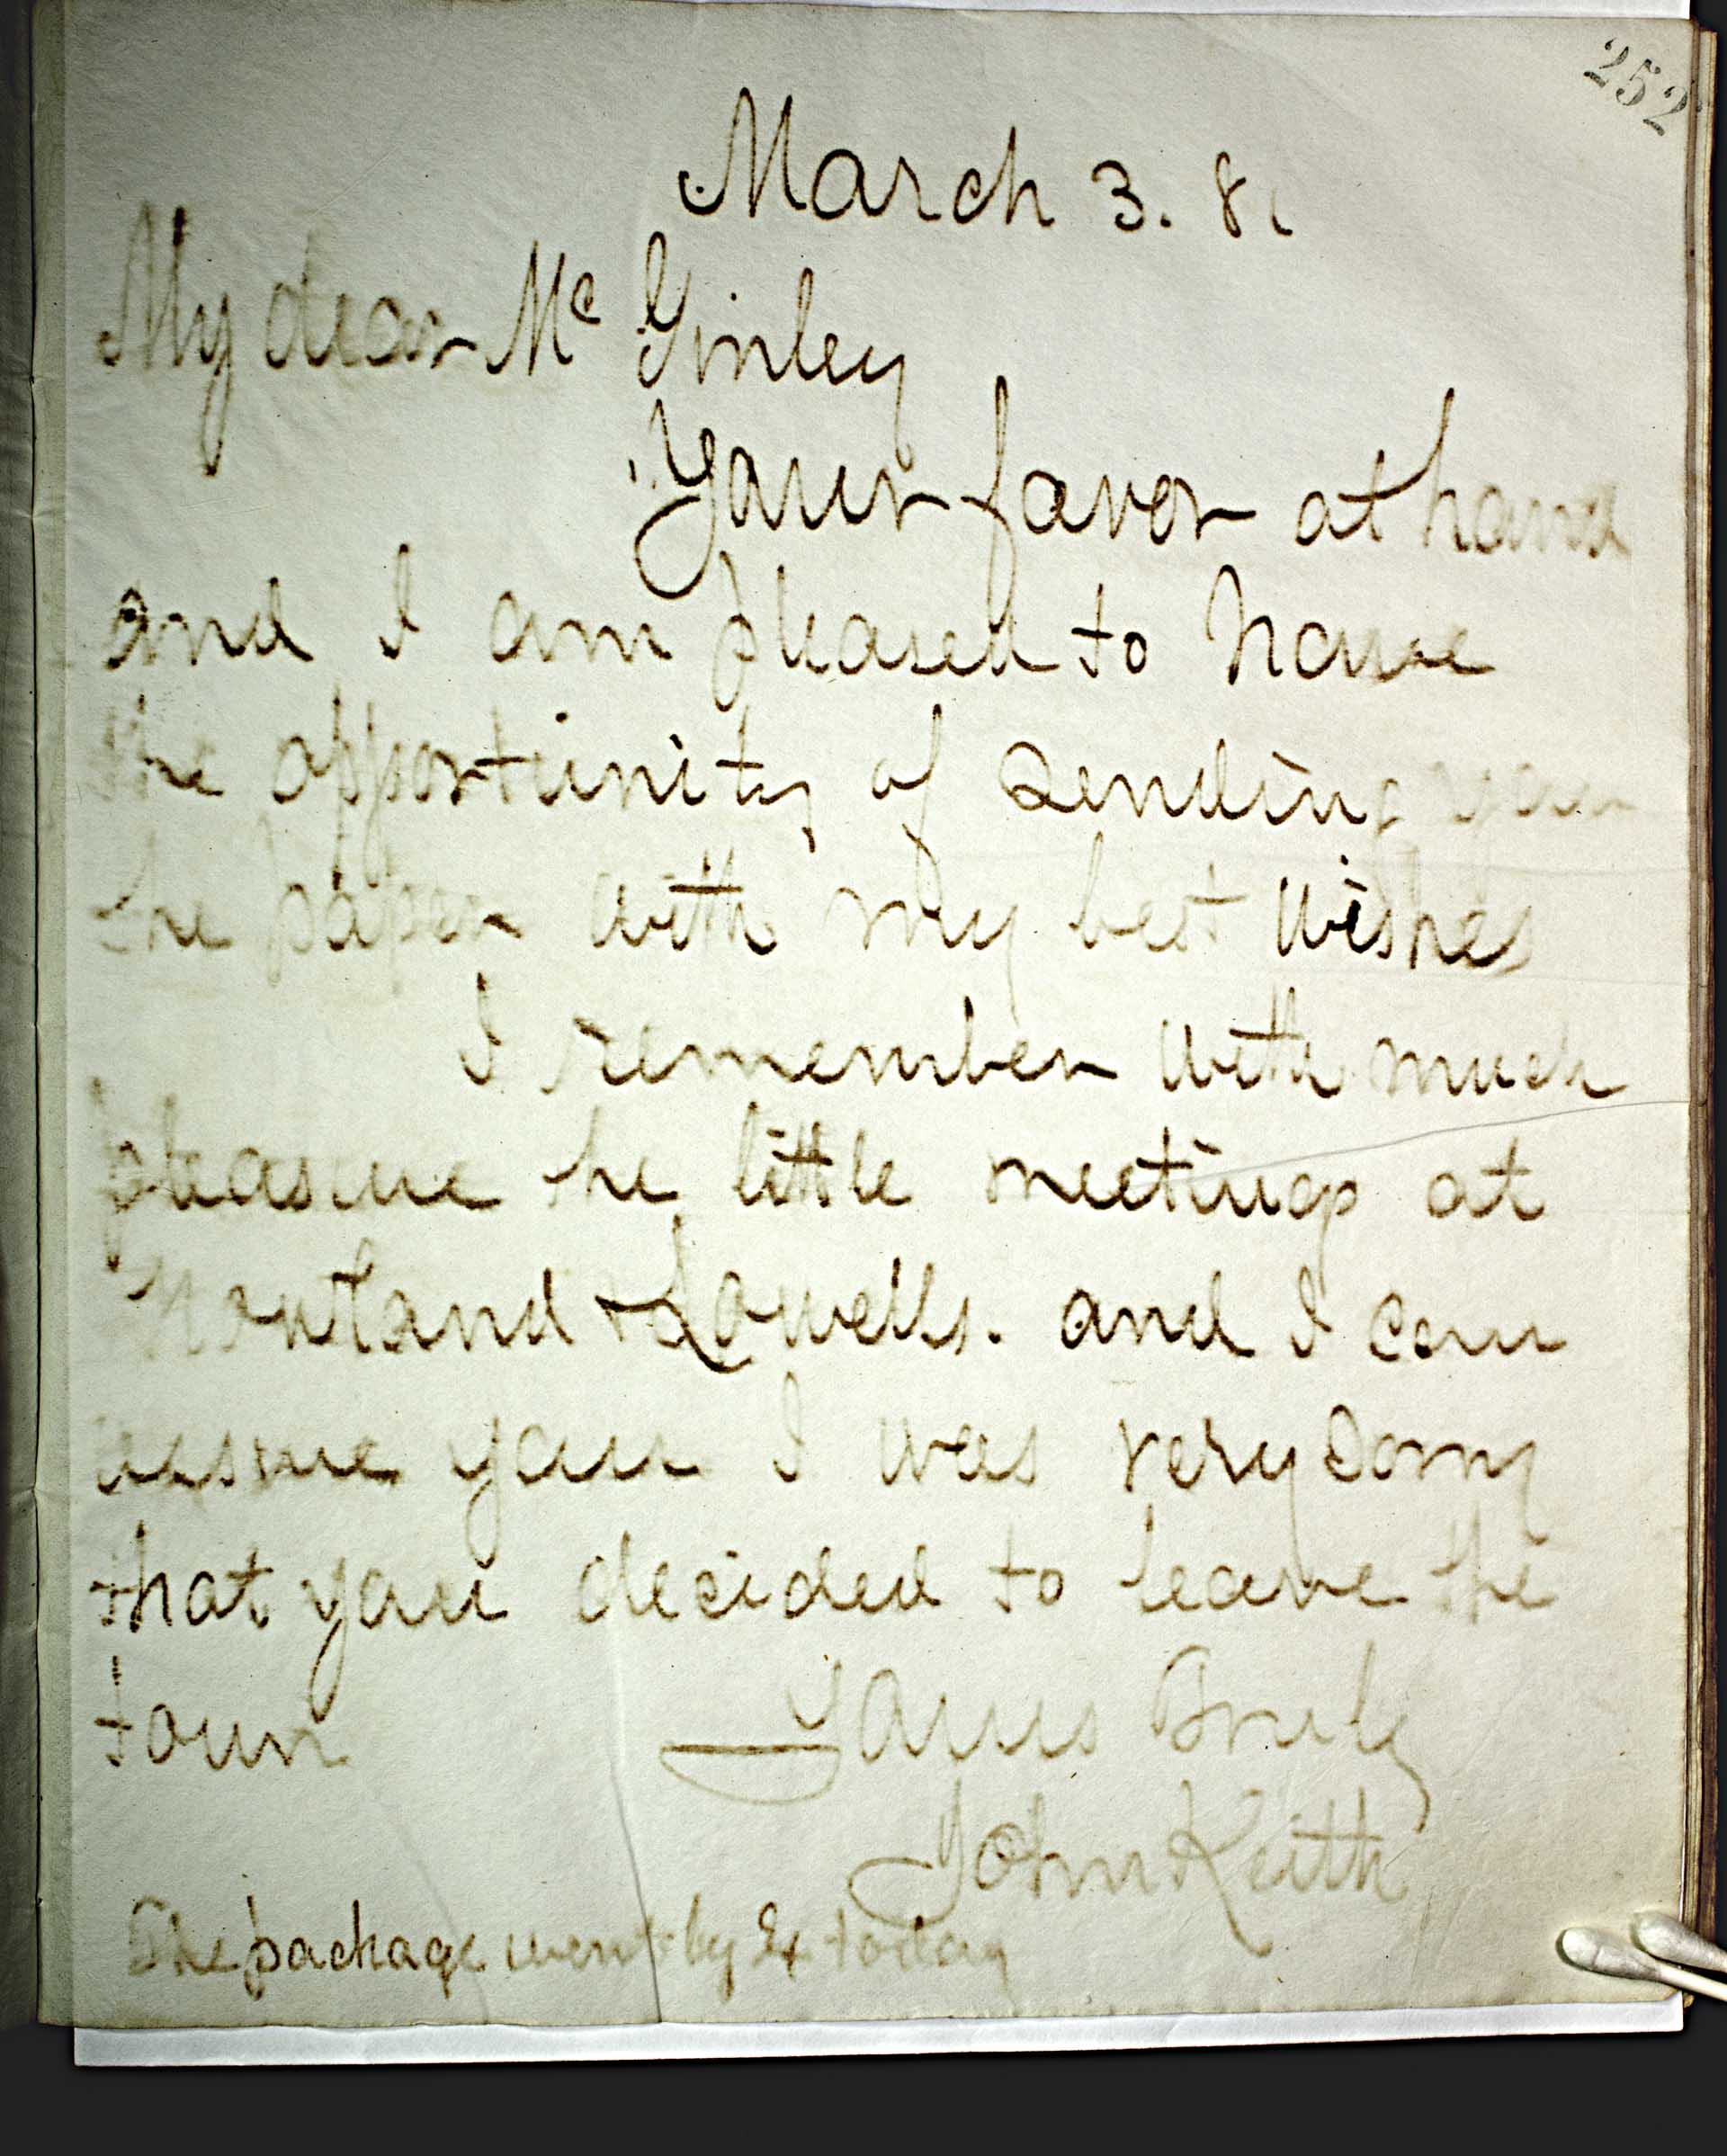 252
March 3. 81
My dear McGinley
Your favor at hand
and I am pleased to have
the opportunity of sending you
the paper with my best wishes
I remember with much
pleasure the little meetings at
and I can
assure you I was very sorry
that you decided to leave the
town
Yours Truly
John Keith
The package went by Ex today